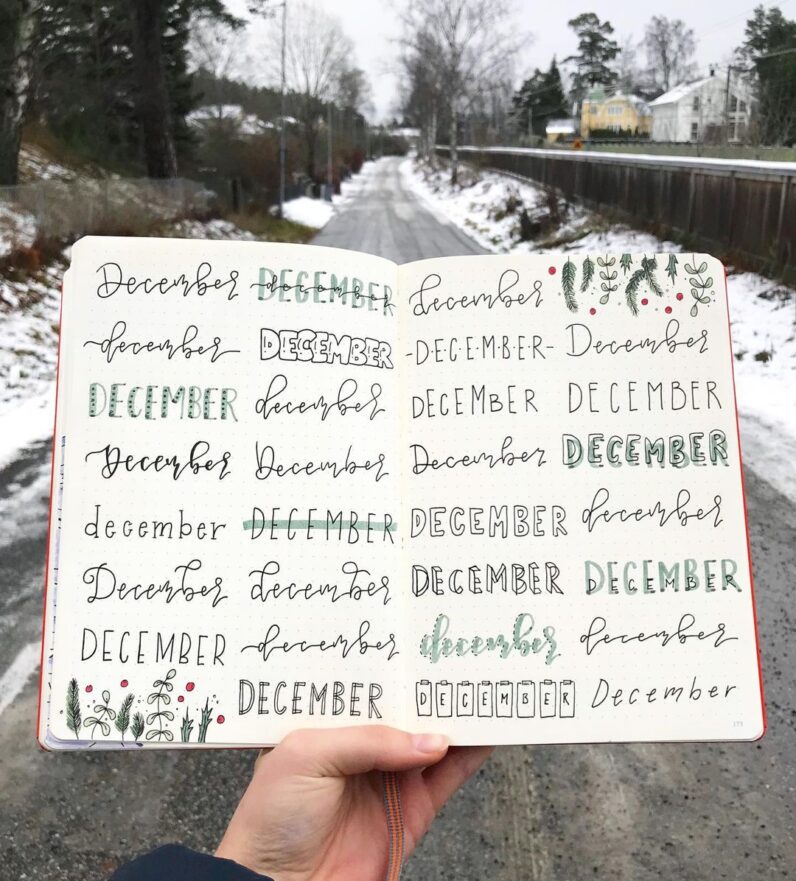 December DECEMBER december
december DECEMBER
DECEMBER december
December December
december DECEMBER
December december
DECEMBER december
DECEMBER
december
-D·E·C·E·M·B·E·R- December
DECEMBER DECEMBER
December DECEMBER
DECEMBER december
DECEMBER DECEMBER DECEMBER
december december
DECEMBER December